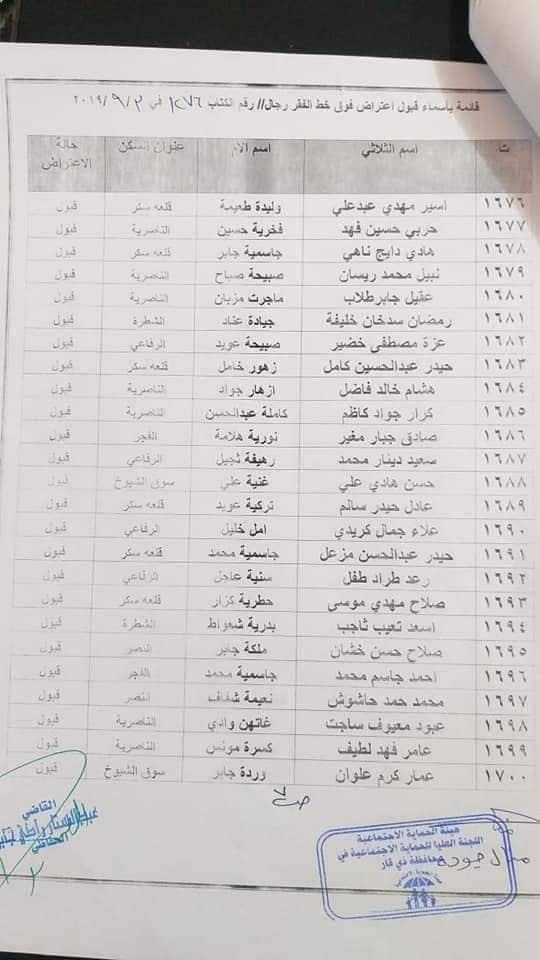 قائمة بأسماء قبول اعتراض فوق خط الفقر رجال// رقم الكتاب ١٢٧٦ في ٢٠١٩/٩/٢
ت اسم الثلاثي اسم الام عنوان السكن حالة الاعتراض
١٦٧٦ اسير مهدي عبدعلي وليدة طعيمة قلعه سكر قبول
١٦٧٧ حربي حسين فهد فخرية حسين الناصرية قبول
١٦٧٨ هادي دايح ناهي جاسمية جابر قلعه سكر قبول
١٦٧٩ نبيل محمد ريسان صبيحة صباح الناصرية قبول
١٦٨٠ عقيل جابرطلاب ماجرت مزبان الناصرية قبول
١٦٨١ رمضان سدخان خليفة جيادة عناد الشطرة قبول
١٦٨٢ عزة مصطفى خضير صبيحة عويد الرفاعي قبول
١٦٨٣ حيدر عبدالحسين كامل زهور خامل قلعه سكر قبول
١٦٨٤ هشام خالد فاضل ازهار جواد الناصرية قبول
١٦٨٥ كرار جواد كاظم كاملة عبدالحسن الناصرية قبول
١٦٨٦ صادق جبار مغير نورية هلامة الفجر قبول
١٦٨٧ سعيد دينار محمد رهيفة ثجيل الرفاعي قبول
١٦٨٨ حسن هادي علي غنية علي سوق الشيوخ قبول
١٦٨٩ عادل حيدر سالم تركية عويد قلعه سكر قبول
١٦٩٠ علاء جمال كريدي امل خليل الرفاعي قبول
١٦٩١ حيدر عبدالحسن مزعل جاسمية محمد قلعه سكر قبول
١٦٩٢ رعد طراد طفل سنية عاجل الرفاعي قبول
١٦٩٣ صلاح مهدي موسى حطرية كزار قلعه سكر قبول
١٦٩٤ اسعد تعيب ثاجب بدرية شعواط الشطرة قبول
١٦٩٥ صلاح حسن خشان ملكة جابر النصر قبول
١٦٩٦ احمد جاسم محمد جاسمية محمد الفجر قبول
١٦٩٧ محمد حمد حاشوش نعيمة شفاف النصر قبول
١٦٩٨ عبود معيوف ساجت غاتهن وادي الناصرية قبول
١٦٩٩ عامر فهد لطيف كسرة مونس الناصرية قبول
١٧٠٠ عمار كرم علوان وردة جابر سوق الشيوخ قبول
القاضي
هيئة الحماية الاجتماعية
اللجنة العليا للحماية الاجتماعية في
محافظة ذي قار